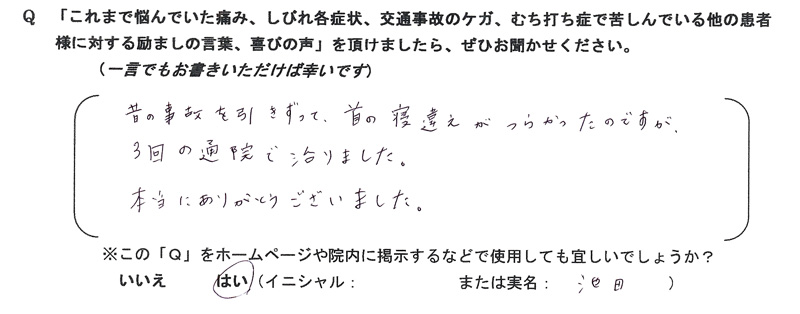 Q 「これまで悩んでいた痛み、しびれ各症状、交通事故のケガ、むち打ち症で苦しんでいる他の患者
様に対する励ましの言葉、喜びの声」を頂けましたら、ぜひお聞かせください。
（一言でもお書きいただけば幸いです）
昔の事故を引きずって、首の寝違えがつらかったのですが、
3回の通院で治りました。
本当にありがとうございました。
※この「Q」をホームページや院内に掲示するなどで使用しても宜しいでしょうか？
いいえ はい（イニシャル： または実名： 池田 ）